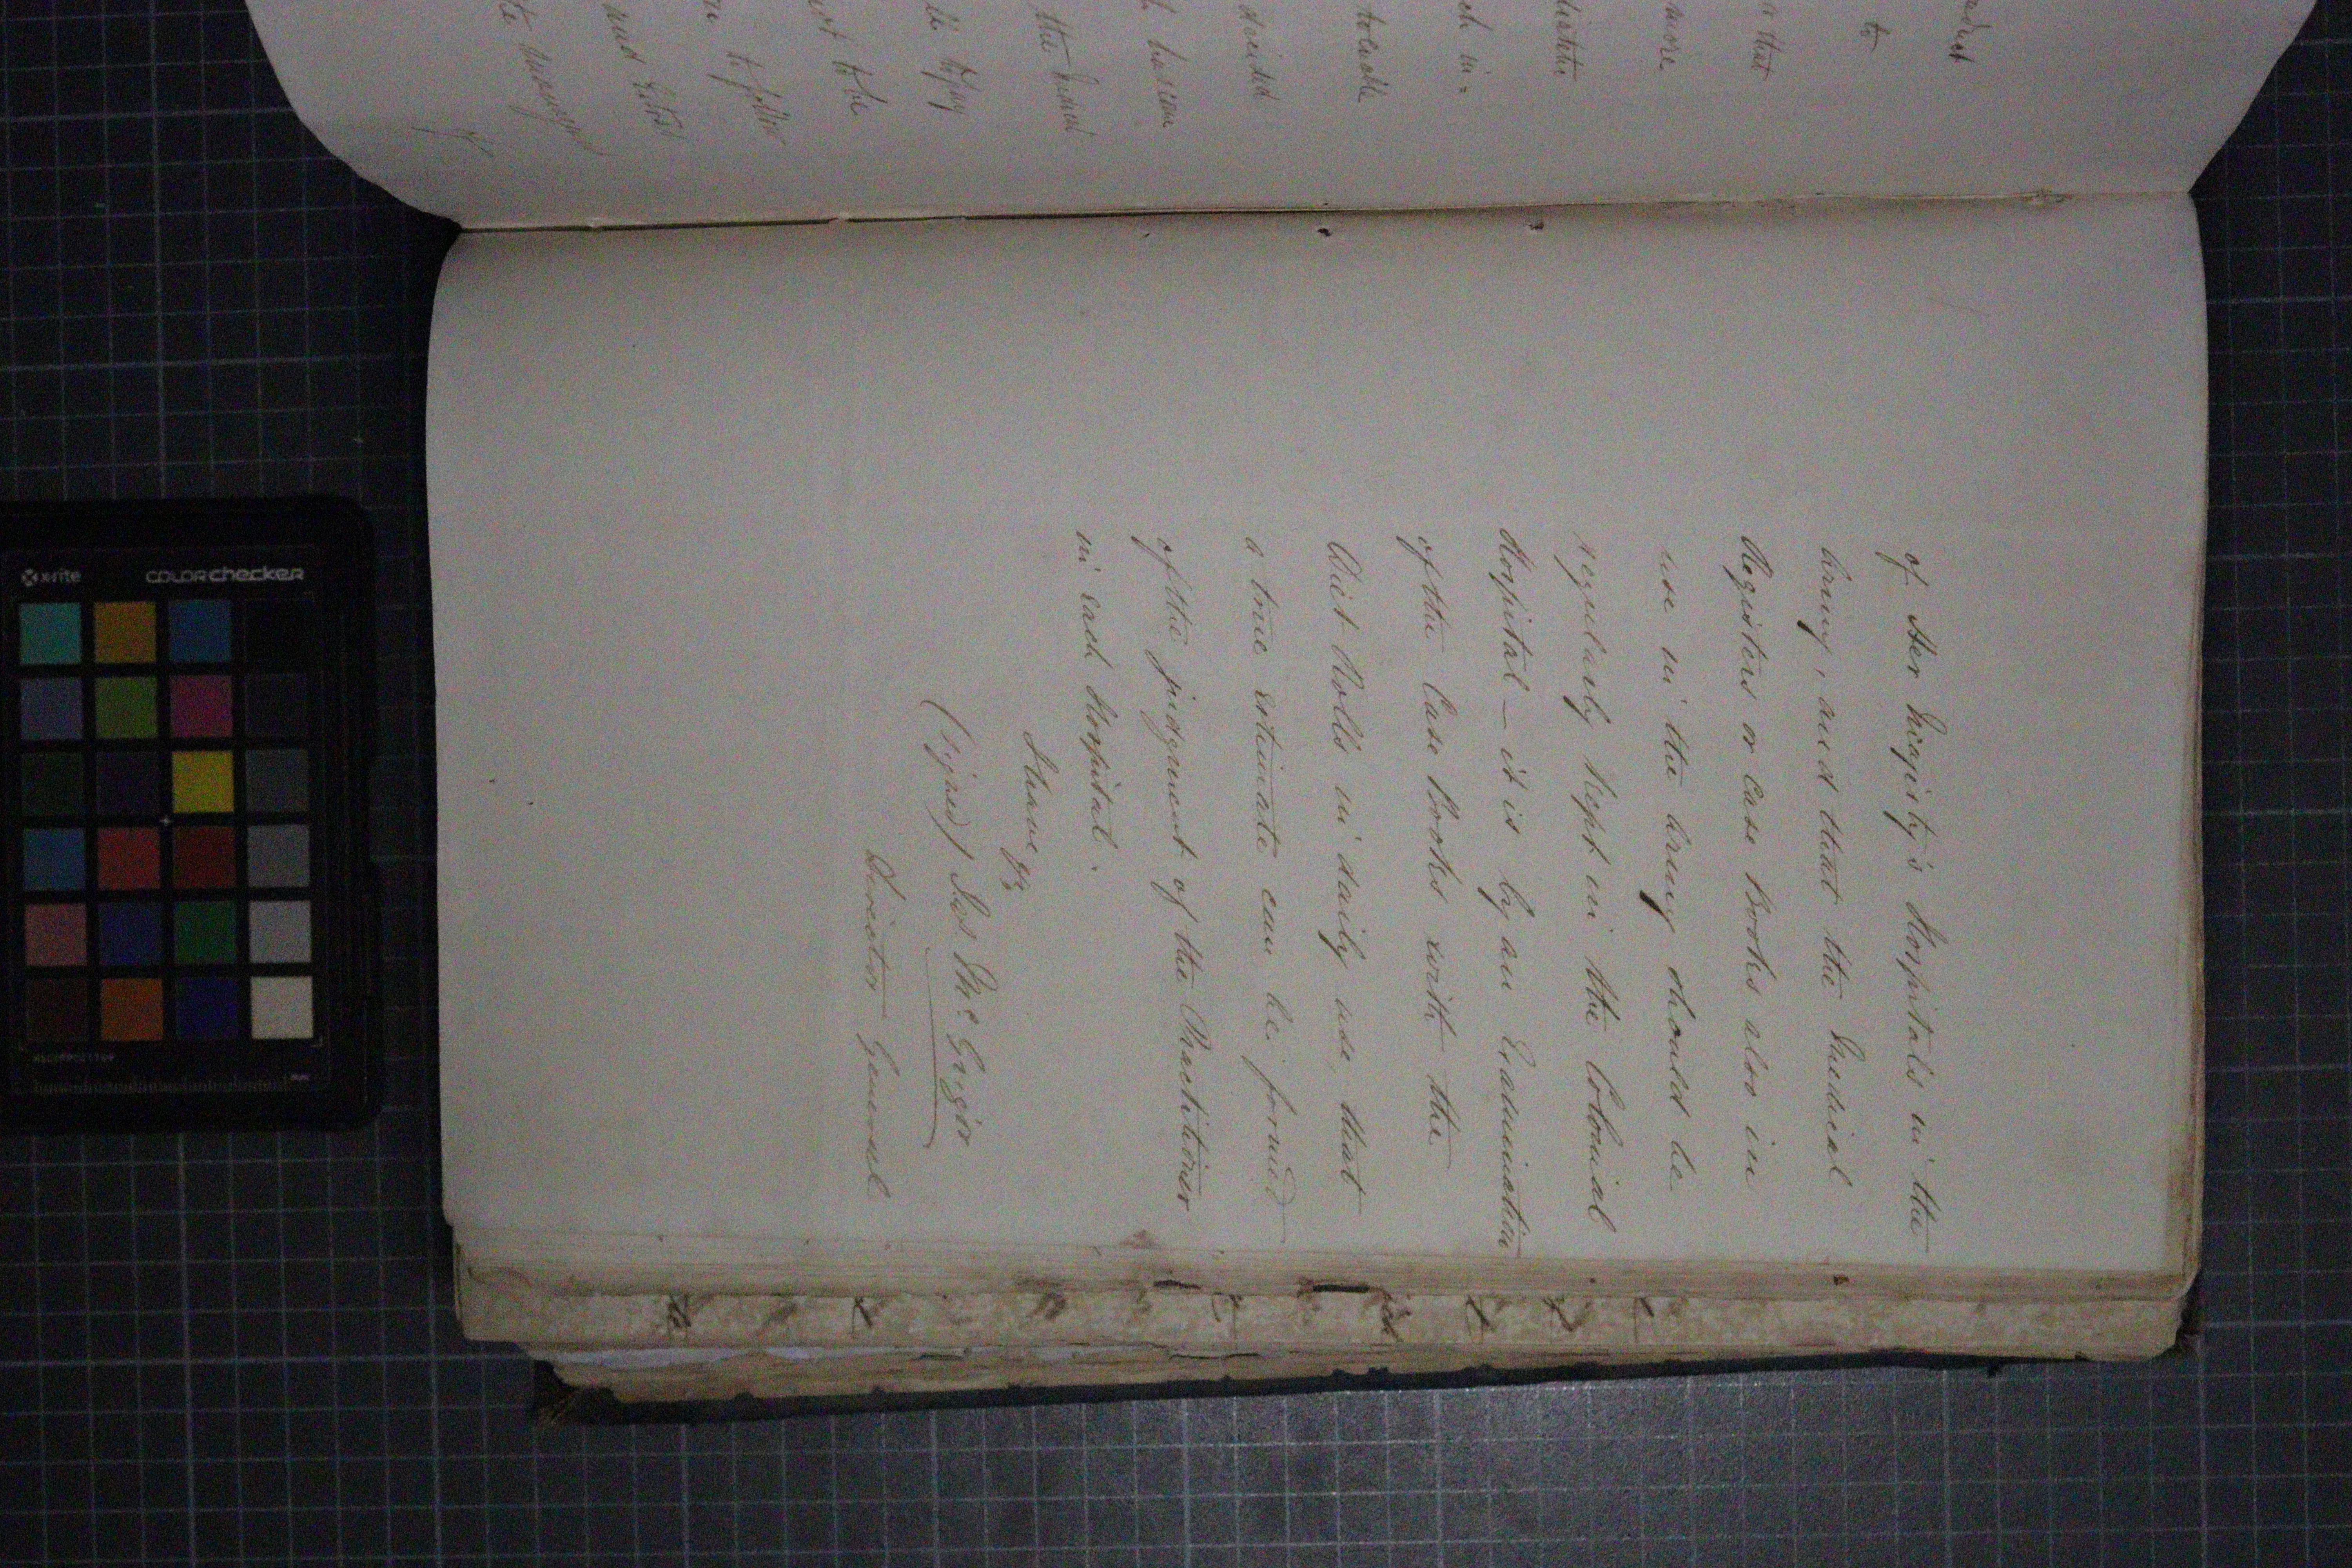 of Her Majesty's Hospitals in the
Army, and that the Medical
Registers or Case Books also in
use in the Army should be
regularly kept in the Colonial
Hospital — it is by an Examination
of the Case Books with the
Diet Rolls in daily use, that
a true estimate can be formed
of the judgment of the Practitioner
in each Hospital.
I have &c
(signed) Jas McGrigor
Director General
to
that
more
ch in=
tolerable
the Medical
to be
to follow
x-rite
colorchecker